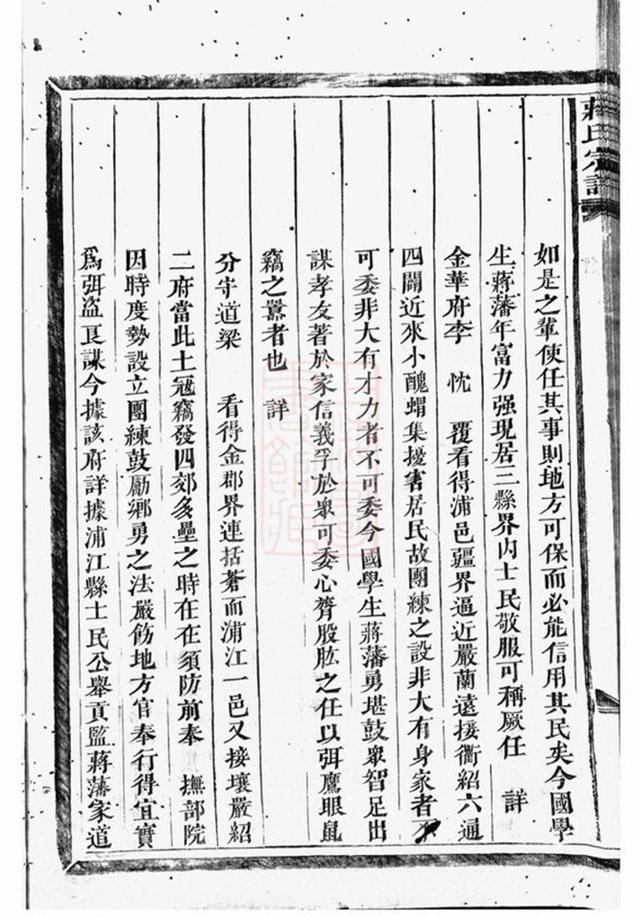 蔣氏宗譜
如是之輩使任其事則地方可保而必能信用其民矣今國學
生蔣藩年富力强現居三縣界内士民敬服可稱厥任 詳
金華府李 忱 覆看得浦邑疆界逼近嚴蘭遠接衢紹六通
四闢近來小醜蝟集擾害居民故團練之設非大有身家者不
可委非大有才力者不可委今國學生蔣藩勇堪鼓眾智足出
謀孝友著於家信義孚於眾可委心膂股肱之任以弭鷹眼鼠
竊之囂者也 詳
分守道梁 看得金郡界連括蒼而浦江一邑又接壤嚴紹
二府當此土冦竊發四郊多壘之時在在須防前奉 撫部院
因時度勢設立團練鼓勵鄉勇之法嚴飭地方官奉行得宜實
爲弭盜良謀今據該府詳據浦江縣士民公舉貢監蔣藩家道